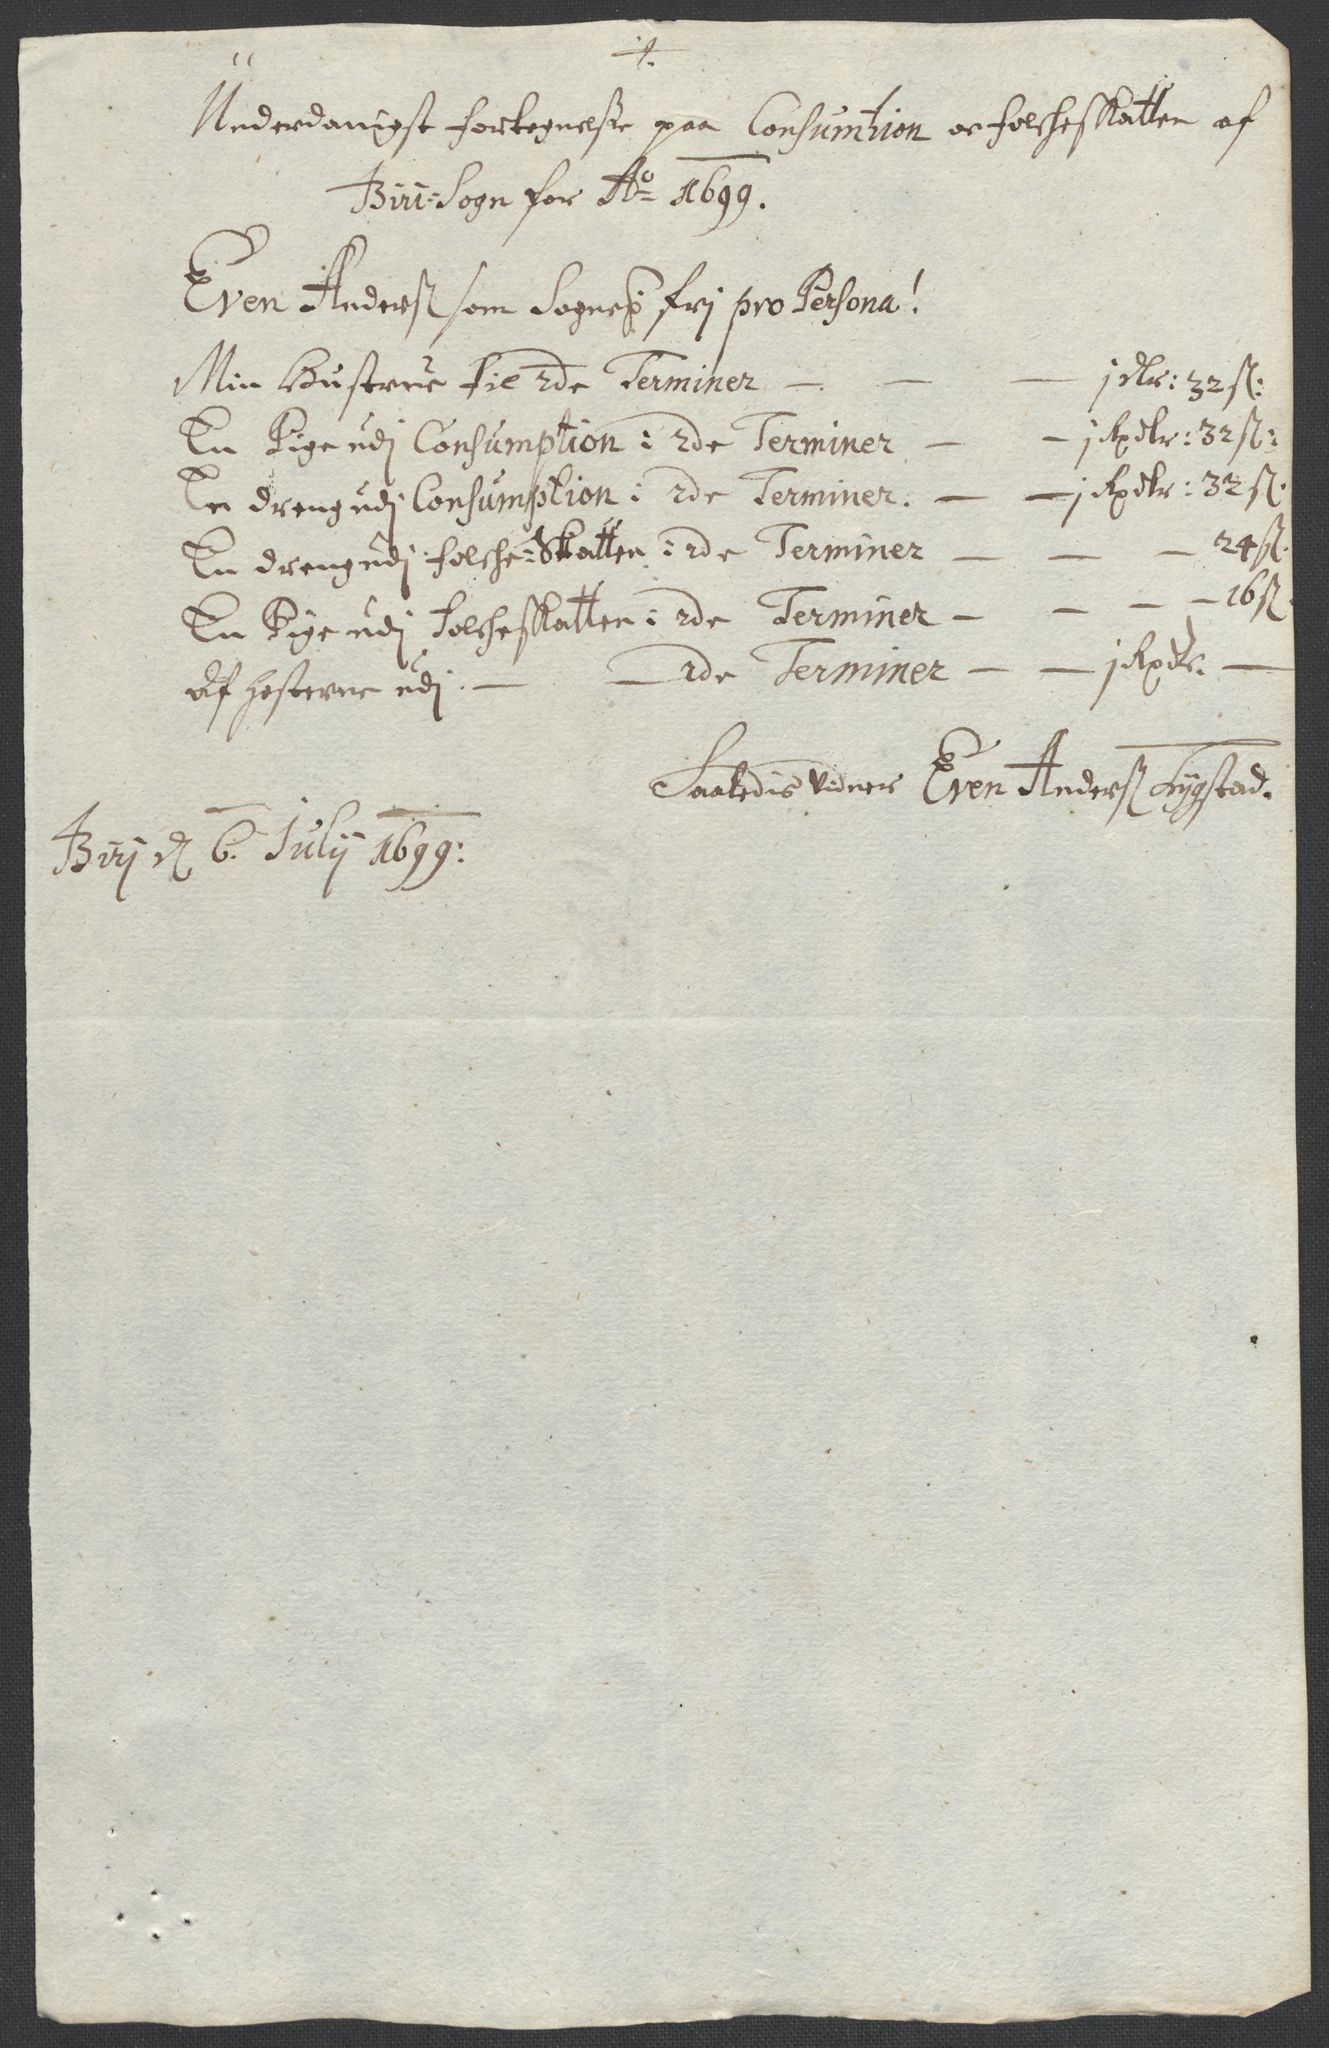 Underdanigst fortegnelse paa Consumtion oc folcheskatten af
Biri-Sogn for Aº 1699.
Even Anderß som Sognep fri pro Persona!
Min Hustrue til 2de Terminer — — — j dlr: 32 ß:
En Pige udj Consumption i 2de Terminer — — j Rxdlr: 32 ß:
En dreng udj Consumption i 2de Terminer. — — j Rxdlr: 32 ß.
En dreng udj folche-Skatten i 2de Terminer — — — 24 ß.
En Pige udj Folcheskatten i 2de Terminer — — — — 16 ß.
Af hesterne udj. — — 2de Terminer — — j Rxdr. —
Saaledis vidner Even Anderß
Birj d 6. Julij 1699: